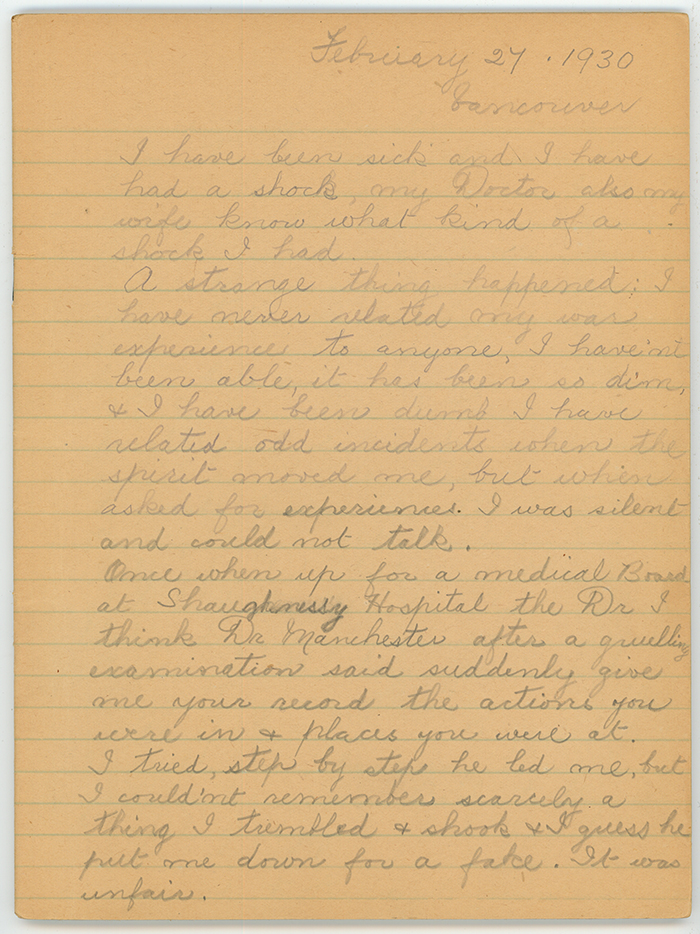 February 27 . 1930
Vancouver
I have been sick and I have
had a shock, my Doctor also my
wife know what kind of a
shock I had.
A strange thing happened; I
have never related my war
experience to anyone, I have'nt
been able, it has been so dim,
& I have been dumb I have
related odd incidents when the
spirit moved me, but when
asked for experiences. I was silent
and could not talk.
Once when up for a medical Board
at Shaughnessy Hospital the Dr I
think Dr Manchester after a gruelling
examination said suddenly give
me your record the actions you
were in & places you were at.
I tried, step by step he led me, but
I could'nt remember scarcely a
thing I trembled & shook & I guess he
put me down for a fake. It was
unfair.